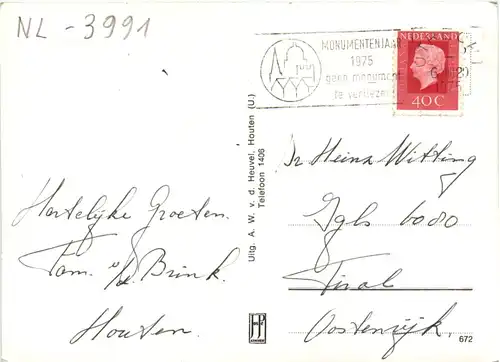 NL-3991
MONUMENTENJAAR
1975
geen monument
te verliezen
NEDERLAND
40C
Hartelijke Groeten.
Fam. v/d. Brink.
Houten.
Uitg. A. W. v. d. Heuvel, Houten (U.)
Telefoon 1406
Heinz Witting
Igls 6080
Tirol
Oostenrijk,
672